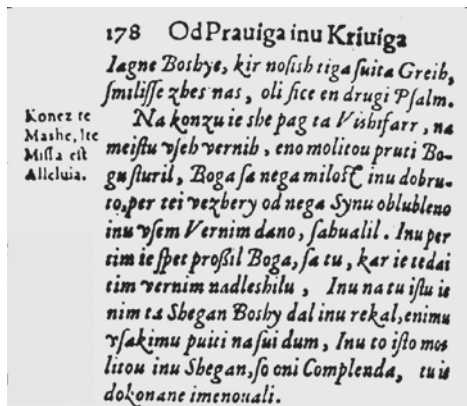 178 Od Prauiga inu Kriuiga
Iagne Boshye, kir noſish tiga ſuita Greih,
ſmiliſſe zhes nas, oli ſice en drugi Pſalm.
Konez te
Mashe, Ite
Miſſa eſt
Alleluia.
Na konzu ie she pag ta Vishifarr, na
meiſtu vſeh vernih, eno molitou pruti Bo-
gu ſturil, Boga ſa nega miloſt inu dobru-
to, per tei vezhery od nega Synu oblubleno
inu vſem Vernim dano, ſahualil. Inu per
tim ie ſpet proſsil Boga, ſa tu, kar ie tedai
tim vernim nadleshilu, Inu na tu iſtu ie
nim ta Shegan Boshy dal inu rekal, enimu
vſakimu puiti na ſui dum, Inu to iſto mo-
litou inu Shegan, ſo oni Complenda, tu ie
dokonane imenouali.